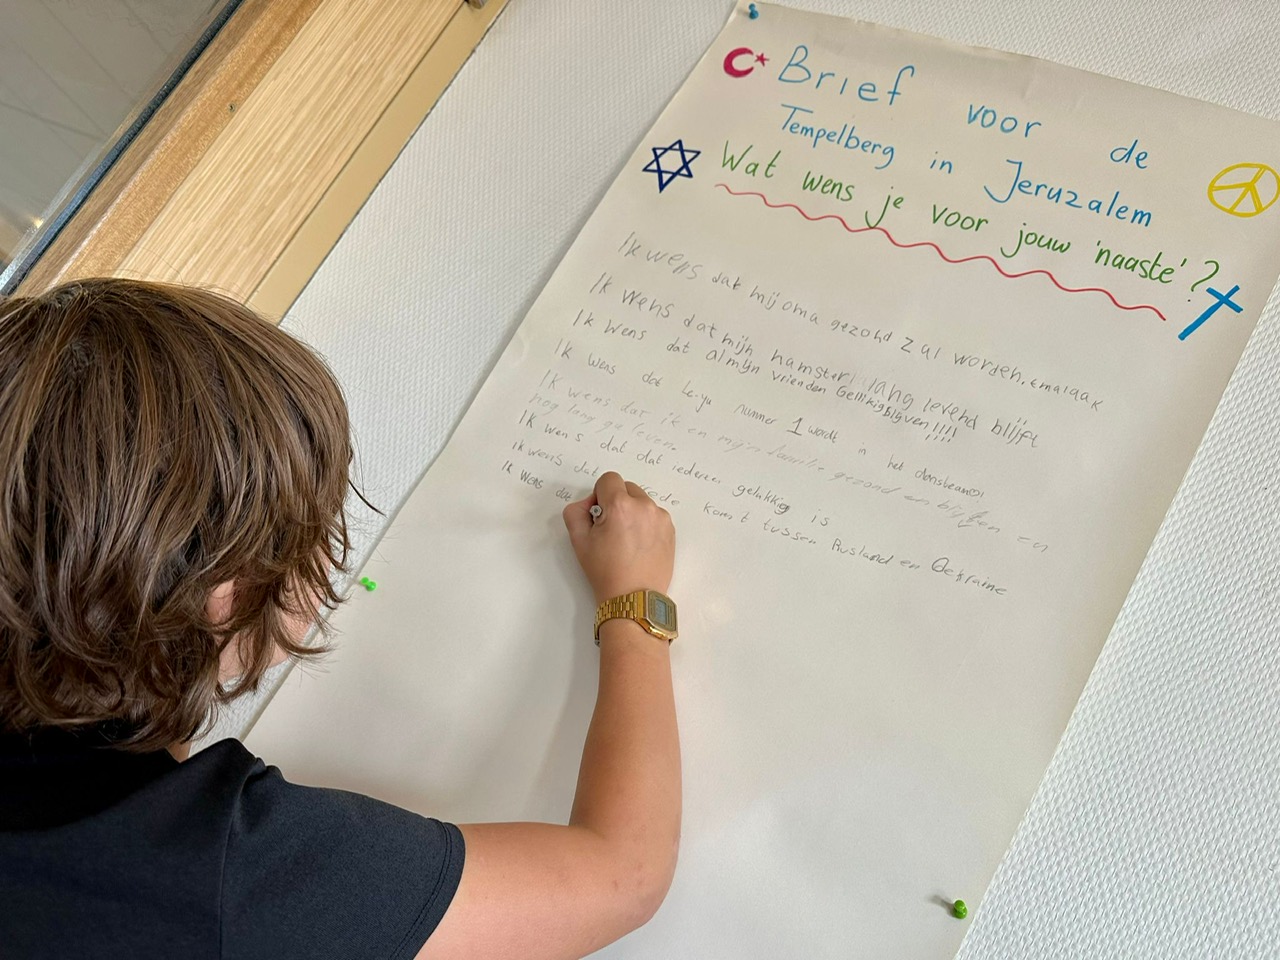 Brief voor de
Tempelberg in Jeruzalem
Wat wens je voor jouw 'naaste'?
Ik wens dat mij oma gezond zal worden.
Ik wens dat mijn hamster lang levend blijft
Ik wens dat al mijn vrienden Gellikig blijven!!!!
!!!!
Ik wens dat nummer 1 wordt in het
Ik wens dat ik en mijn familie gezond en blijven en
nog lang ga leven.
Ik wens dat dat iedereen gelukkig is
Ik wens dat
Ik wens dat komt tussen Rusland en Oekraine